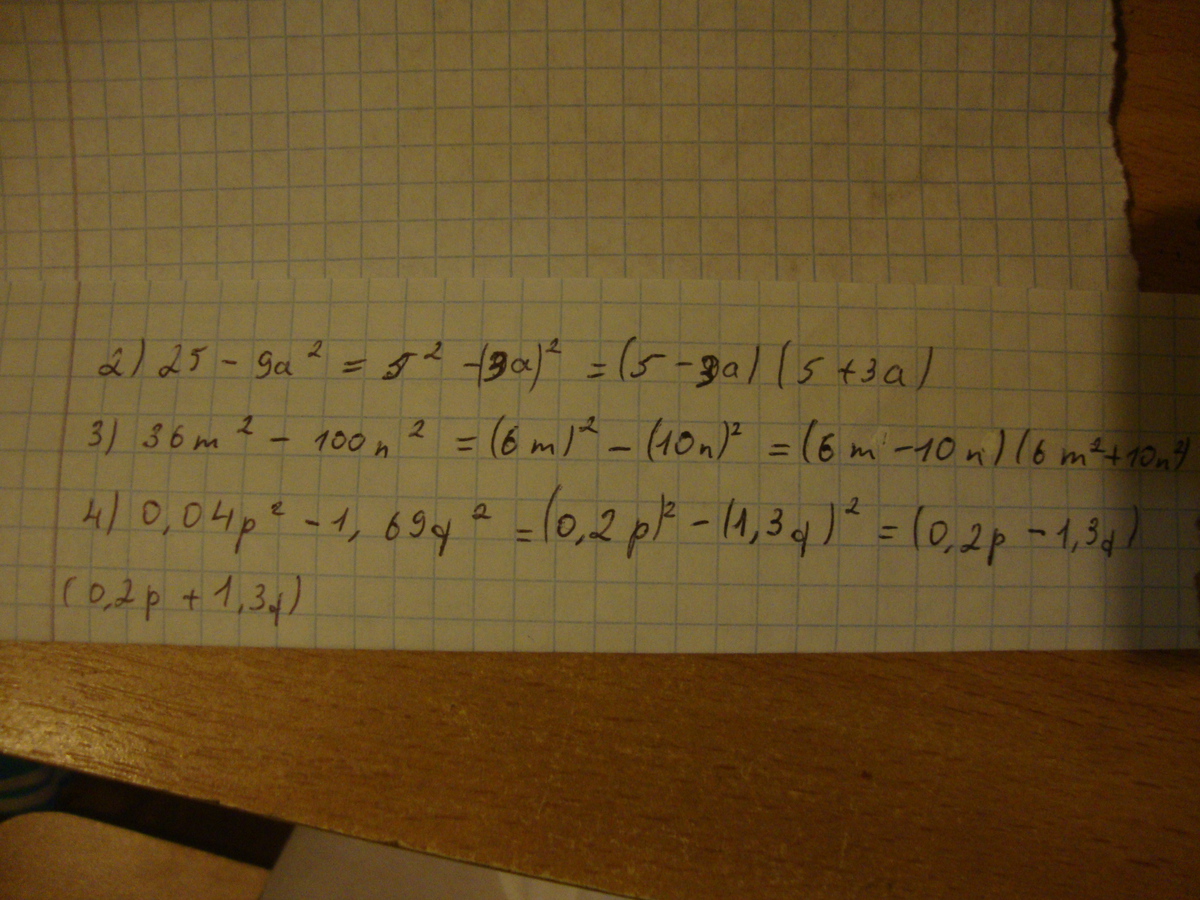 2) 25 - 9a² = 5² - (3a)² = (5 - 3a) (5 + 3a)
3) 36m² - 100n² = (6m)² - (10n)² = (6m - 10n) (6m² + 10n²)
4) 0,04p² - 1,69q² = (0,2p)² - (1,3q)² = (0,2p - 1,3q)
(0,2p + 1,3q)